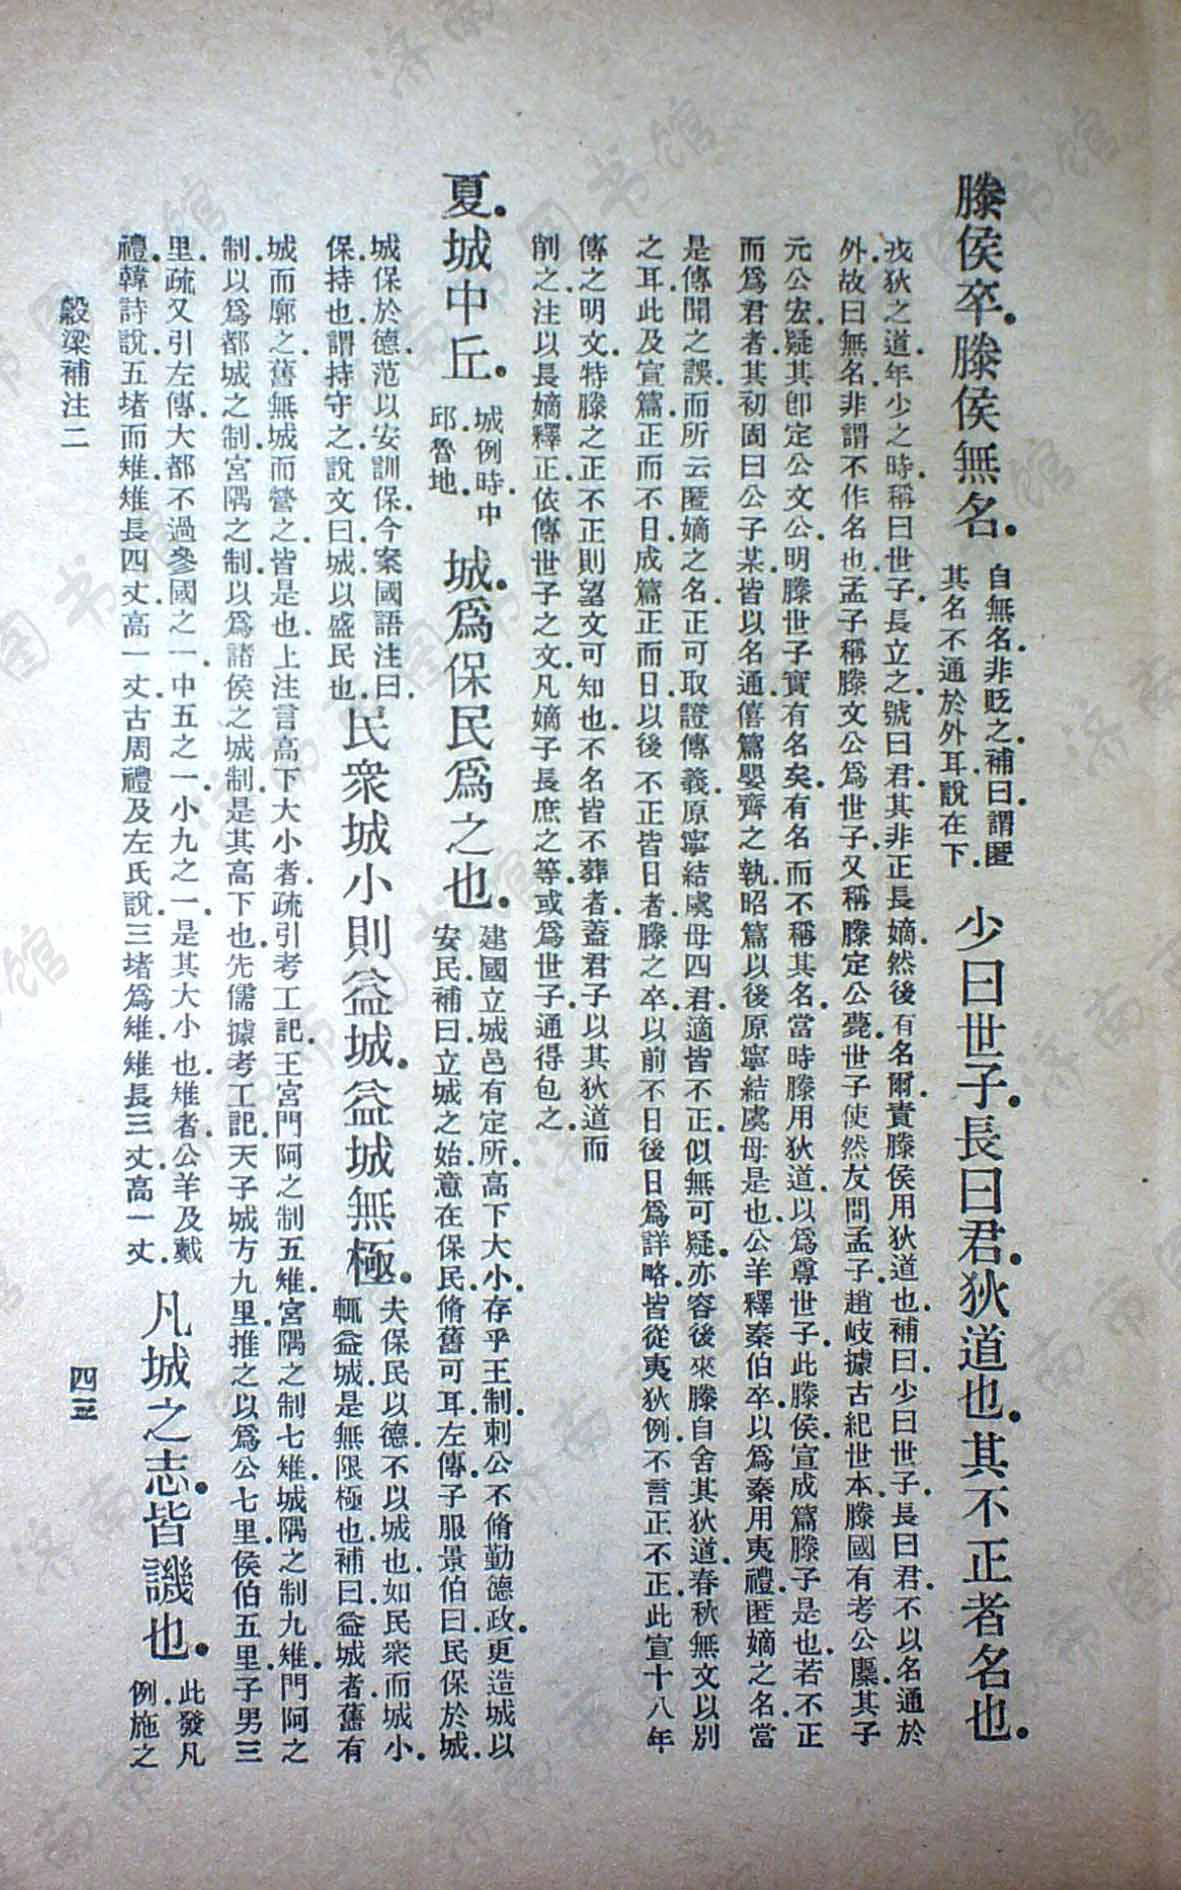 滕侯卒．滕侯無名．自無名．非貶之．補曰．謂匿
其名不通於外耳．說在下．少曰世子．長曰君．狄道也．其不正者名也．
戎狄之道．年少之時．稱曰世子．長立之．號曰君．其非正長嫡．然後有名爾．責滕侯用狄道也．補曰．少曰世子．長曰君．不以名通於
外．故曰無名．非謂不作名也．孟子稱滕文公爲世子．又稱滕定公薨．世子使然友問孟子．趙岐據古紀世本．滕國有考公麋．其子
元公宏．疑其卽定公文公．明滕世子實有名矣．有名而不稱其名．當時滕用狄道．以爲尊世子．此滕侯．宣成篇滕子是也．若不正
而爲君者．其初固曰公子某．皆以名通．僖篇嬰齊之執．昭篇以後原寧結虞母是也．公羊釋秦伯卒．以爲秦用夷禮．匿嫡之名．當
是傳聞之誤．而所云匿嫡之名．正可取證傳義．原寧結虞母四君．適皆不正．似無可疑．亦容後來滕自舍其狄道．春秋無文以別
之耳．此及宣篇正而不日．成篇正而日．以後不正皆日者．滕之卒．以前不日後日爲詳略．皆從夷狄例．不言正不正．此宣十八年
傳之明文．特滕之正不正．則望文可知也．不名皆不葬者．蓋君子以其狄道而
削之．注以長嫡釋正．依傳世子之文．凡嫡子長庶之等．或爲世子．通得包之．
夏．城中丘．城例時．中
邱．魯地．城．爲保民爲之也．建國立城邑有定所．高下大小．存乎王制．刺公不脩勤德政．更造城以
安民．補曰．立城之始．意在保民．脩舊可耳．左傳．子服景伯曰．民保於城．
城保於德．范以安訓保．今案國語注曰．
保．持也．謂持守之．說文曰．城．以盛民也．民衆城小則益城．益城無極．夫保民以德．不以城也．如民衆而城小．
輒益城．是無限極也．補曰．益城者．舊有
城而廓之．舊無城而營之．皆是也．上注言高下大小者．疏引考工記．王宮門阿之制五雉．宮隅之制七雉．城隅之制九雉．門阿之
制．以爲都城之制．宮隅之制．以爲諸侯之城制．是其高下也．先儒據考工記．天子城方九里．推之以爲公七里．侯伯五里．子男三
里．疏又引左傳．大都不過參國之一．中五之一．小九之一．是其大小也．雉者．公羊及戴
禮．韓詩說．五堵而雉．雉長四丈．高一丈．古周禮及左氏說．三堵爲雉．雉長三丈．高一丈．凡城之志．皆譏也．此發凡
例．施之
穀梁補注二
四三